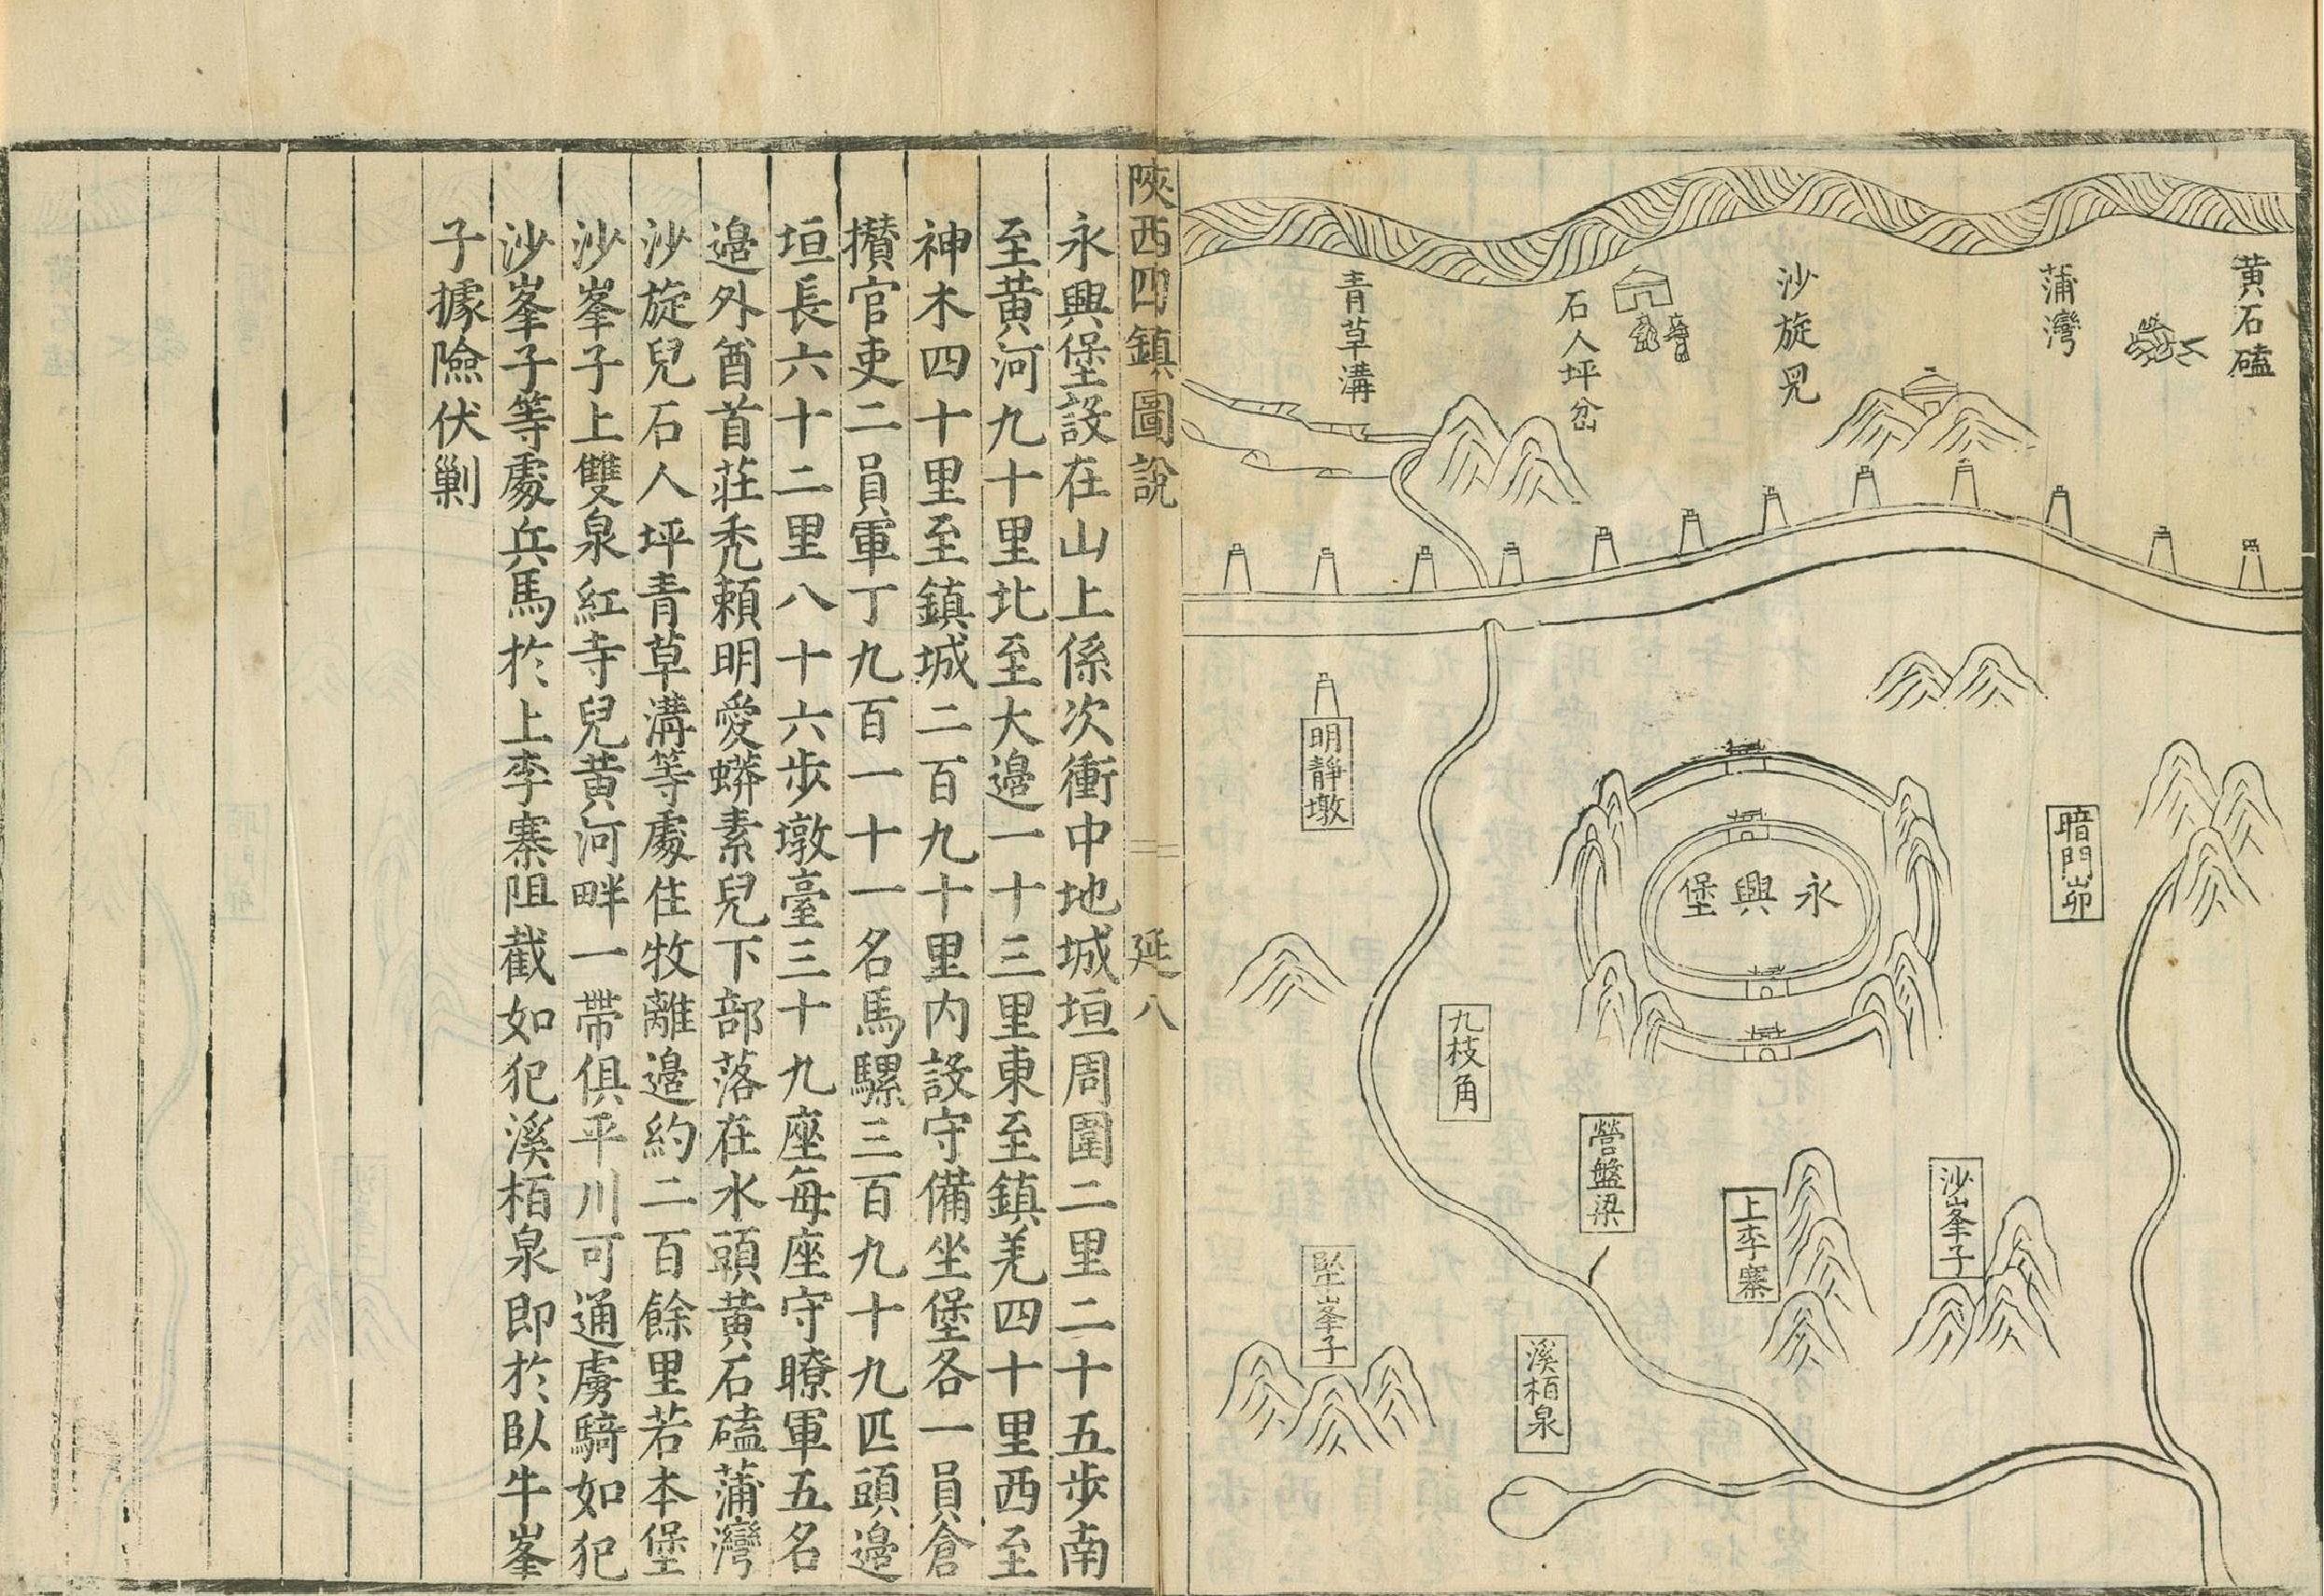 黄石磕
蒲灣
沙旋児
石人坪岔
青草溝
明靜墩
暗門峁
永興堡
九枝角
營盤梁
沙峯子
上李寨
臥牛峯子
溪栢泉
陝西四鎮圖說 延八
永興堡設在山上係次衝中地城垣周圍二里二十五步南
至黄河九十里北至大邊一十三里東至鎮羌四十里西至
神木四十里至鎮城二百九十里内設守備坐堡各一員倉
攢官吏二員軍丁九百一十一名馬騾三百九十九匹頭邊
垣長六十二里八十六步墩臺三十九座每座守瞭軍五名
邊外酋首莊禿賴明愛蟒素兒下部落在水頭黄石磕蒲灣
沙旋兒石人坪青草溝等處住牧離邊約二百餘里若本堡
沙峯子上雙泉紅寺兒黄河畔一帶俱平川可通虜騎如犯
沙峯子等處兵馬扵上李寨阻截如犯溪栢泉即扵臥牛峯
子據險伏剿